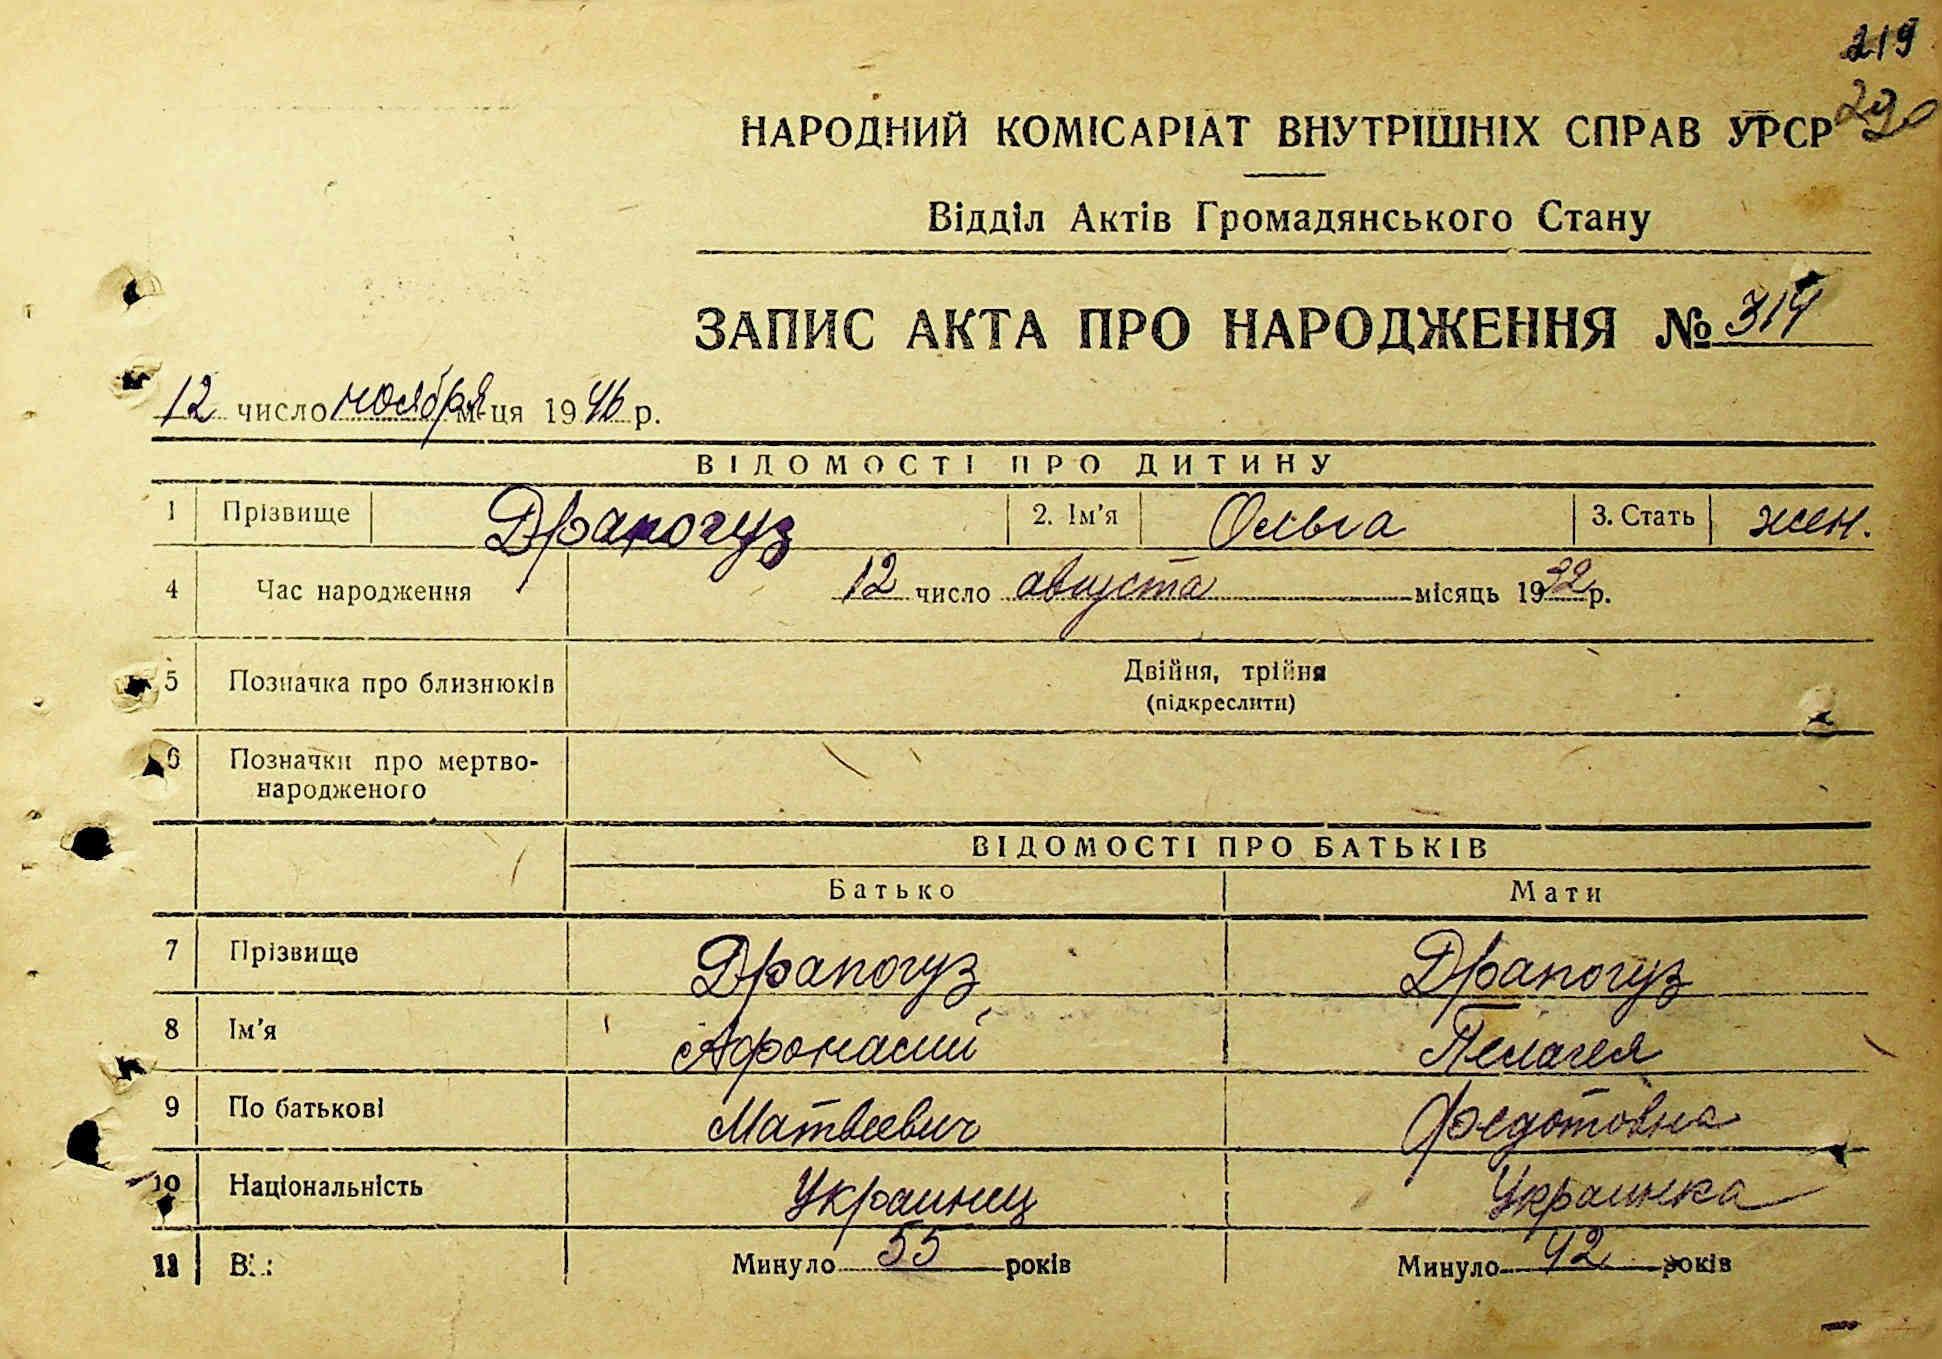 219
НАРОДНИЙ КОМІСАРІАТ ВНУТРІШНІХ СПРАВ УРСР
Відділ Актів Громадянського Стану
ЗАПИС АКТА ПРО НАРОДЖЕННЯ № 314
12 число ноября м-ця 1946 р.
ВІДОМОСТІ ПРО ДИТИНУ
1 Прізвище Драпогуз 2. Ім'я Ольга 3. Стать жен.
4 Час народження 12 число августа місяць 1932 р.
5 Позначка про близнюків Двійня, трійня
(підкреслити)
6 Позначки про мертво-
народженого
ВІДОМОСТІ ПРО БАТЬКІВ
Батько Мати
7 Прізвище Драпогуз Драпогуз
8 Ім'я Афонасий Пелагея
9 По батькові Матвеевич Федотовна
10 Національність Украинец Украинка
11 Ві Минуло 55 років Минуло 42 років